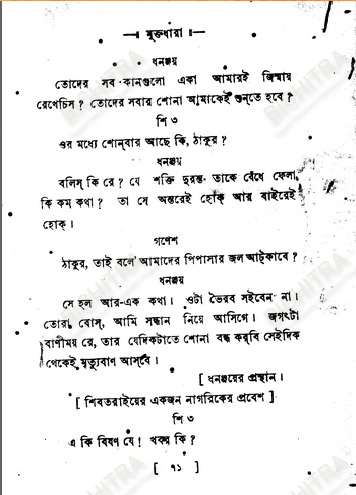 মুক্তধারা
ধনঞ্জয়
তোদের সব কানগুলো একা আমারই জিম্মায়
রেখেচিস? তোদের সবার শোনা আমাকেই শুন্‌তে হবে?
শি ৩
ওর মধ্যে শোন্‌বার আছে কি, ঠাকুর?
ধনঞ্জয়
বলিস্ কি রে? যে শক্তি দুরন্ত তাকে বেঁধে ফেলা,
কি কম কথা? তা সে অন্তরেই হোক্ আর বাইরেই
হোক্।
গণেশ
ঠাকুর, তাই বলে' আমাদের পিপাসার জল আট্‌কাবে?
ধনঞ্জয়
সে হল আর-এক কথা। ওটা ভৈরব সইবেন না।
তোরা বোস্, আমি সন্ধান নিয়ে আসিগে। জগৎটা
বাণীময় রে, তার যেদিকটাতে শোনা বন্ধ কর্‌বি সেইদিক
থেকেই মৃত্যুবাণ আস্‌বে।
[ ধনঞ্জয়ের প্রস্থান।
[ শিবতরাইয়ের একজন নাগরিকের প্রবেশ ]
শি ৩
এ কি বিষণ যে! খবর কি?
[ ৭১ ]